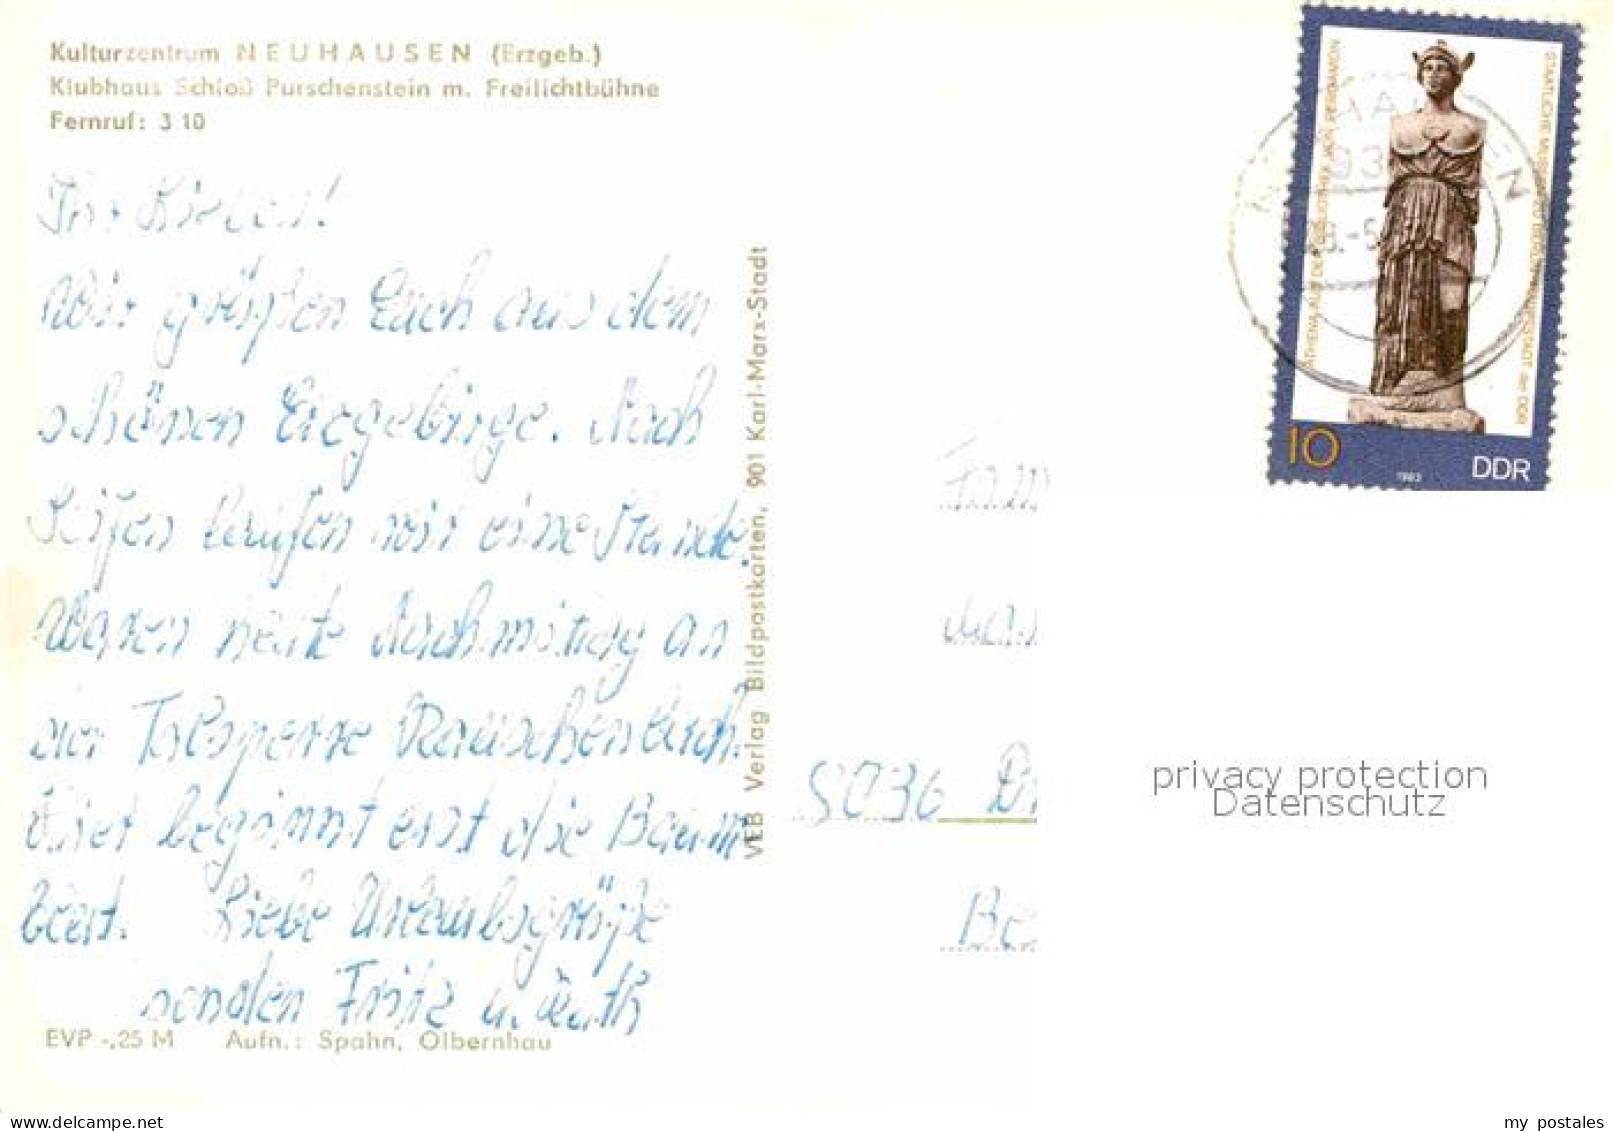 Kulturzentrum NEUHAUSEN (Erzgeb.)
Klubhaus Schloß Purschenstein m. Freilichtbühne
Fernruf: 3 10
Ihr Lieben!
Wir grüßen Euch aus dem
schönen Erzgebirge. Nach
Seifen laufen wir eine Stunde.
Waren heute Nachmittag an
der Talsperre Rauschenbach.
Hier beginnt erst die Baum
blüt. Liebe Urlaubsgrüße
senden Fritz u. Ruth
EVP -,25 M Aufn.: Spahn, Olbernhau
VEB Verlag Bildpostkarten, 901 Karl-Marx-Stadt
ATHENA AUS DER BIBLIOTHEK VON PERGAMON
STAATLICHE MUSEEN ZU BERLIN HAUPTSTADT der DDR
10
1983
DDR
5036
privacy protection
Datenschutz
my_postales